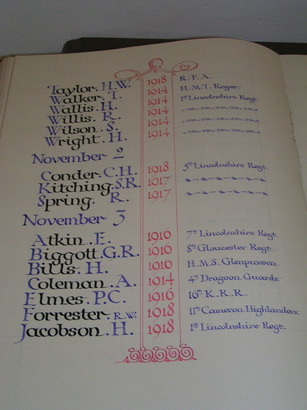 Taylor. H.W. 1918 R.F.A.
Walker. T. 1914 H.M.T. Roger.
Wallis. H. 1914 1st Lincolnshire Regt.
Willis. R. 1914
Wilson. S. 1914
Wright. H. 1914
November 2
Conder. C.H. 1918 5th Lincolnshire Regt.
Kitching. S.R. 1917
Spring. R. 1917
November 3
Atkin. E. 1916 7th Lincolnshire Regt.
Biggott. G.R. 1916 8th Gloucester Regt.
Bills. H. 1916 H.M.S. Glenprossen.
Coleman. A. 1914 4th Dragoon Guards.
Elmes. P.C. 1916 16th K.R.R.
Forrester. R.W. 1918 11th Cameron Highlanders.
Jacobson. H. 1918 1st Lincolnshire Regt.